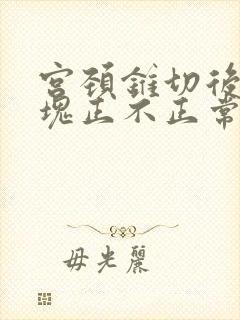 宫颈锥切後
塊正不正常
毋光麗